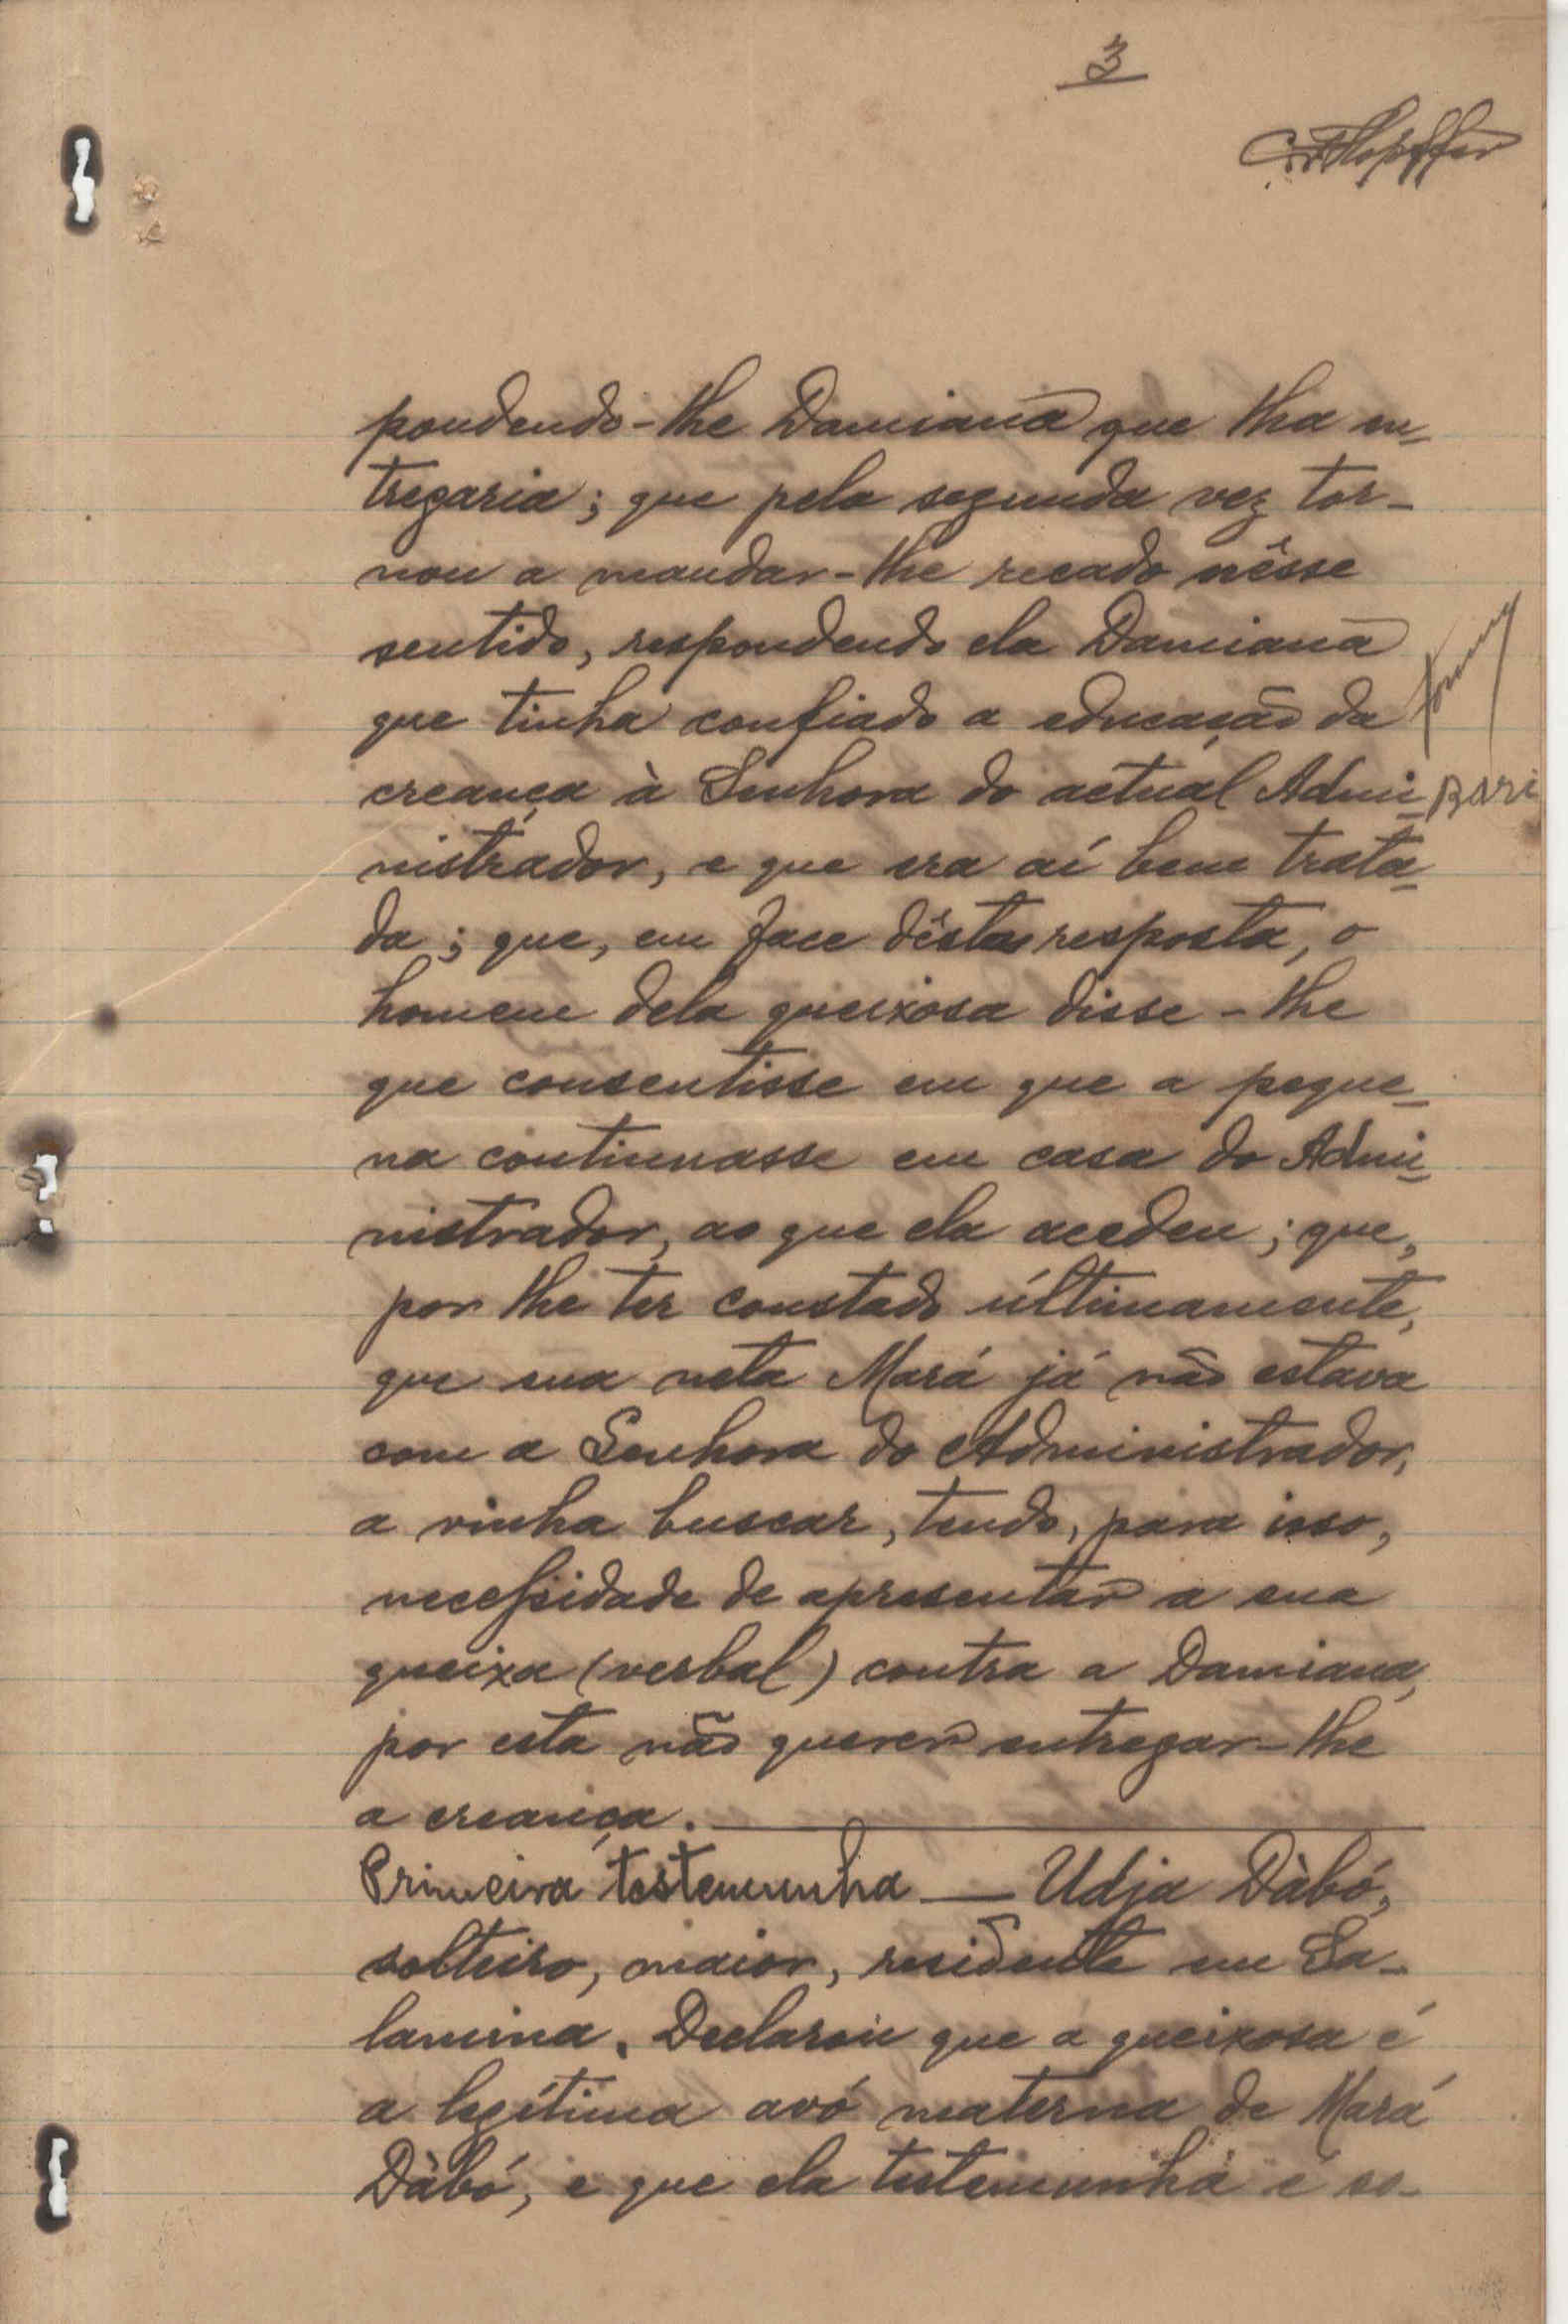 3
pondendo-lhe Damiana que lha en-
tregaria; que pela segunda vez tor-
nou a mandar-lhe recado nêsse
sentido, respondendo ela Damiana
que tinha confiado a educação da
creança à Senhora do actual Admi-
nistrador, e que era aí bem trata-
da; que, em face désta resposta, o
homem dela queixosa disse-lhe
que consentisse em que a peque-
na continuasse em casa do Admi-
nistrador, ao que ela acedeu; que,
por lhe ter constado últimamente,
que sua neta Mará já não estava
com a Senhora do Administrador,
a vinha buscar, tendo, para isso,
necessidade de apresentar a sua
queixa (verbal) contra a Damiana,
por esta não querer entregar-lhe
a creança.
Primeira testemunha — Udja Dàbó,
solteiro, maior, residente em Sa-
lamina. Declarou que a queixosa é
a legítima avó materna de Mará
Dàbó, e que ela testemunha é so-